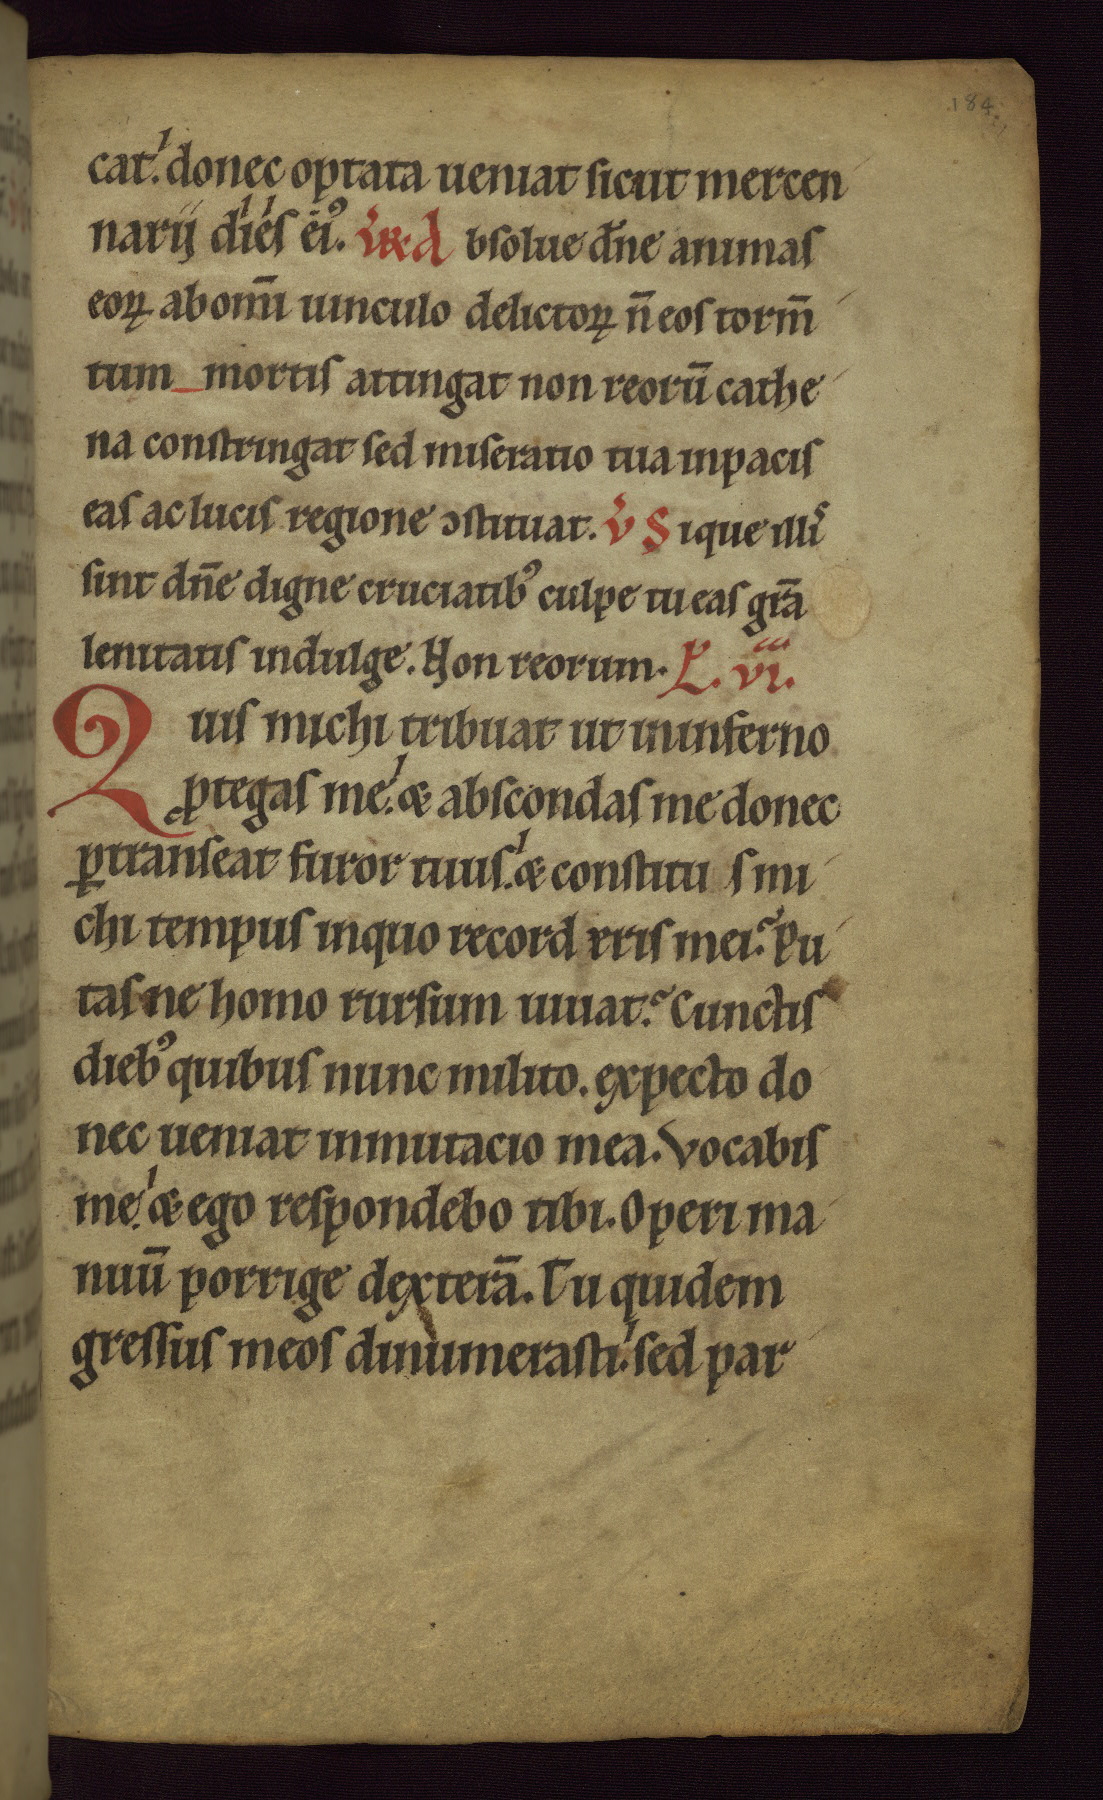 184
cat. donec optata ueniat sicut mercen
narij dies eiꝰ. R A bsolue dn̄e animas
eoꝝ ab om̄i uinculo delictoꝝ n̄ eos torm̄
tum mortis attingat non reorū cathe
na constringat sed miseratio tua inpacis
eas ac lucis regione ꝯstituat. V S ique illis
sint dn̄e digne cruciatibꝰ culpe tu eas gr̄a
lenitatis indulge. Non reorum. L. viii.
Quis michi tribuat ut in inferno
ꝓtegas me. & abscondas me donec
ꝑtranseat furor tuus. & constitu s mi
chi tempus inquo record eris mei. Pu
tas ne homo rursum uiuat. Cunctis
diebꝰ quibus nunc milito. expecto do
nec ueniat inmutacio mea. Vocabis
me. & ego respondebo tibi. Operi ma
nuū porrige dexterā. Tu quidem
gressus meos dinumerasti. sed par